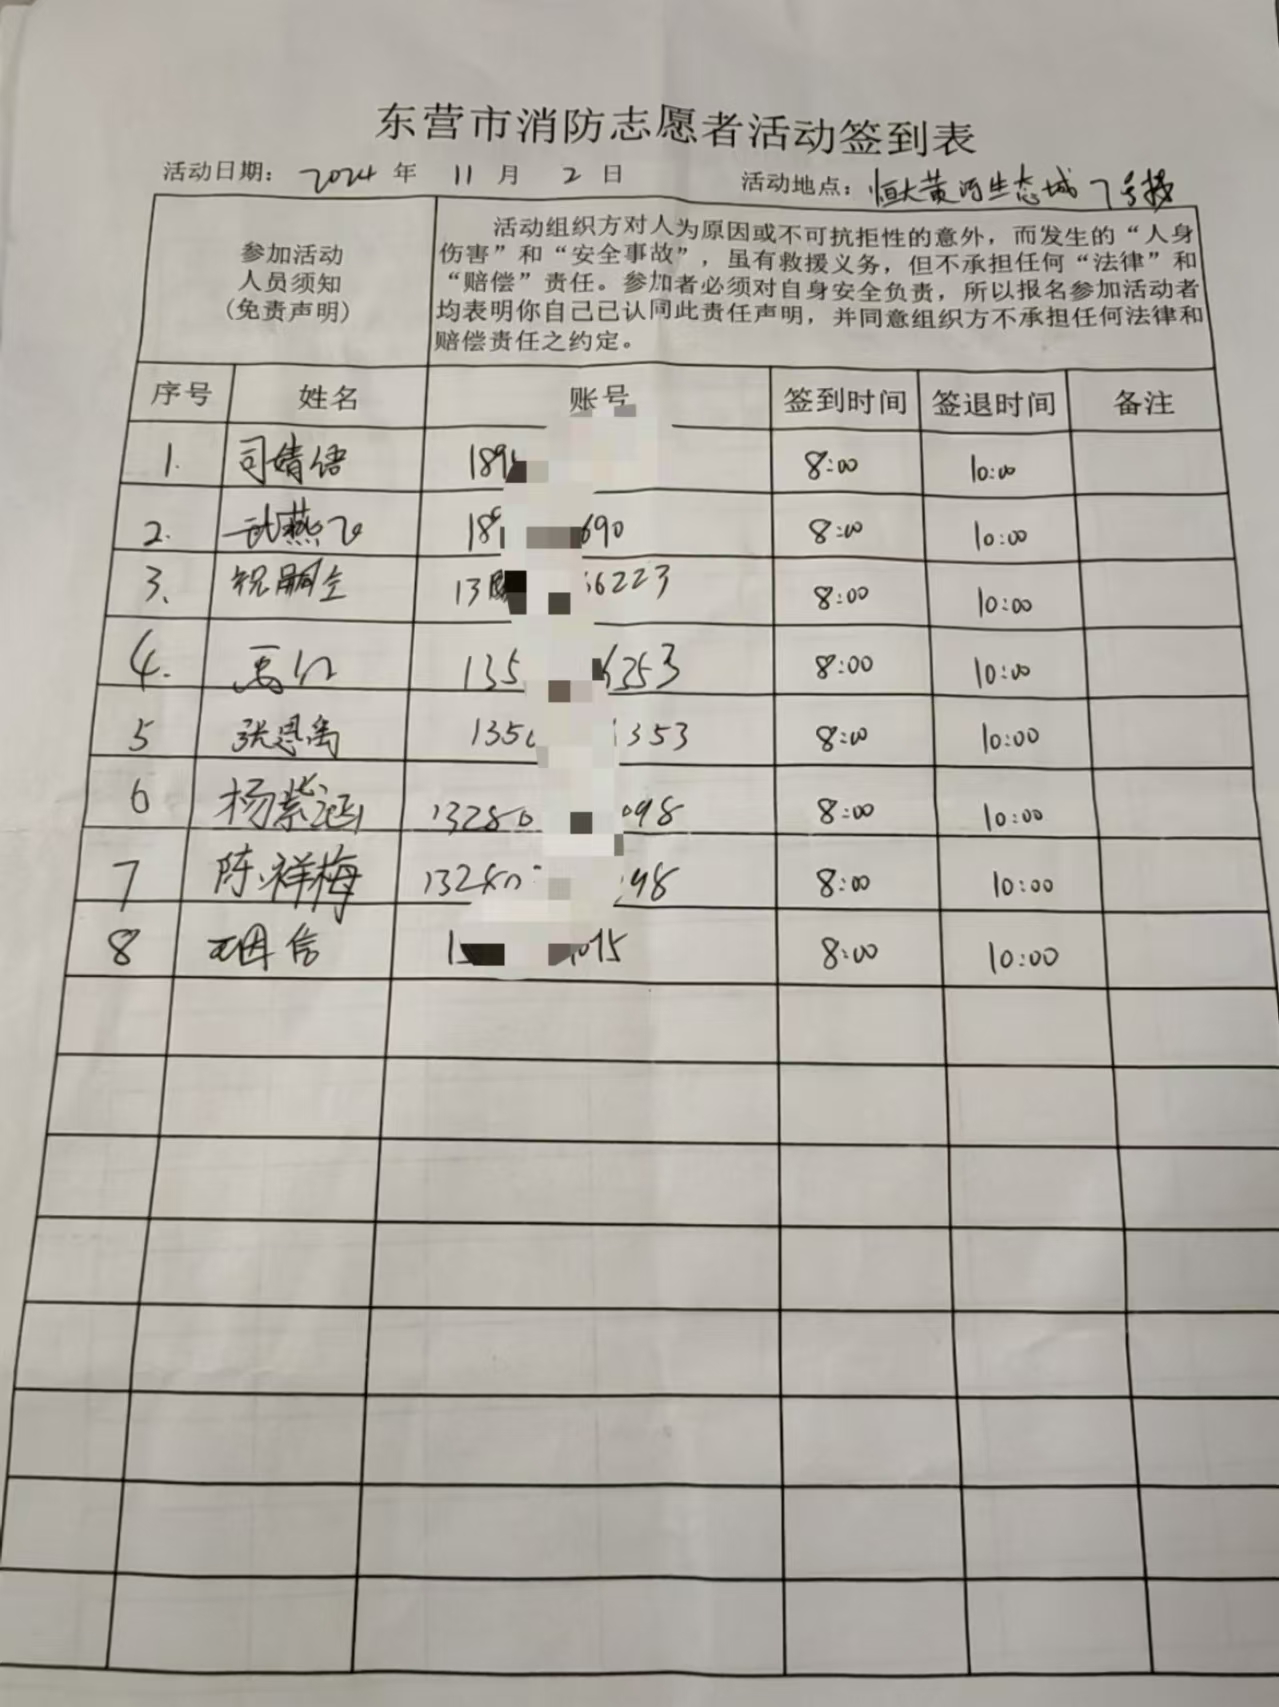 东营市消防志愿者活动签到表
活动日期： 2024 年 11 月 2 日 活动地点：恒大黄河生态城 7号楼
参加活动
人员须知
(免责声明)
活动组织方对人为原因或不可抗拒性的意外，而发生的“人身
伤害”和“安全事故”，虽有救援义务，但不承担任何“法律”和
“赔偿”责任。参加者必须对自身安全负责，所以报名参加活动者
均表明你自己已认同此责任声明，并同意组织方不承担任何法律和
赔偿责任之约定。
序号 姓名 账号 签到时间 签退时间 备注
1. 司婧语 189 8:00 10:00
2. 武燕飞 18 690 8:00 10:00
3、 祝嗣立 13 6223 8:00 10:00
4. 135 6353 8:00 10:00
5 张恩禹 135 1353 8:00 10:00
6 杨紫涵 13280 098 8:00 10:00
7 陈祥梅 13280 98 8:00 10:00
8 15 015 8:00 10:00